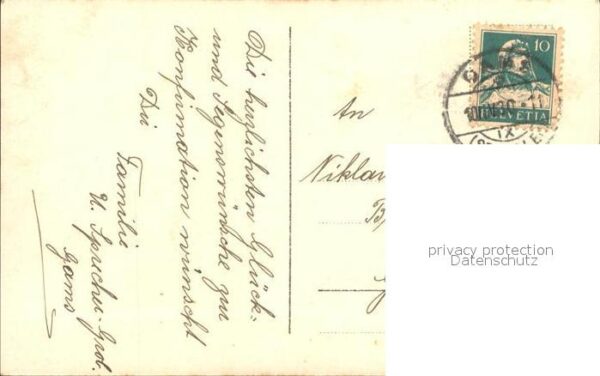 Die herzlichsten Glück-
und Segenswünsche zur
Konfirmation wünscht
Dir
Familie
U. Specker-Grob.
Gams
10
GAMS
HELVETIA
An
Niklau
privacy protection
Datenschutz